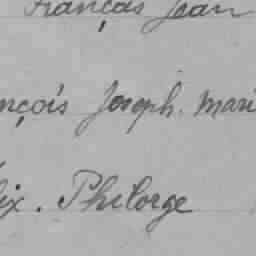 François Jean
nçois Joseph. Mari
ix. Philorge